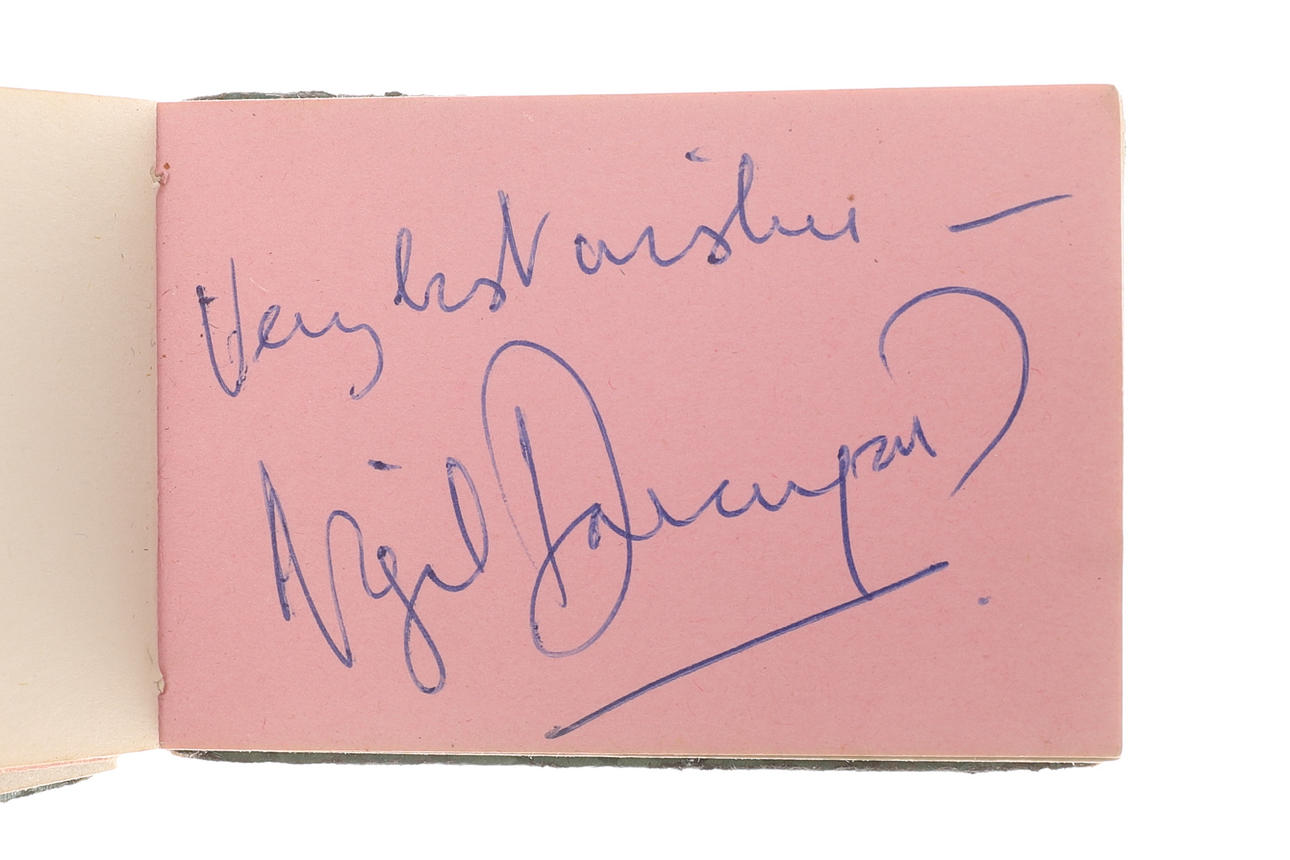 Very best wishes —
Nigel Davenport